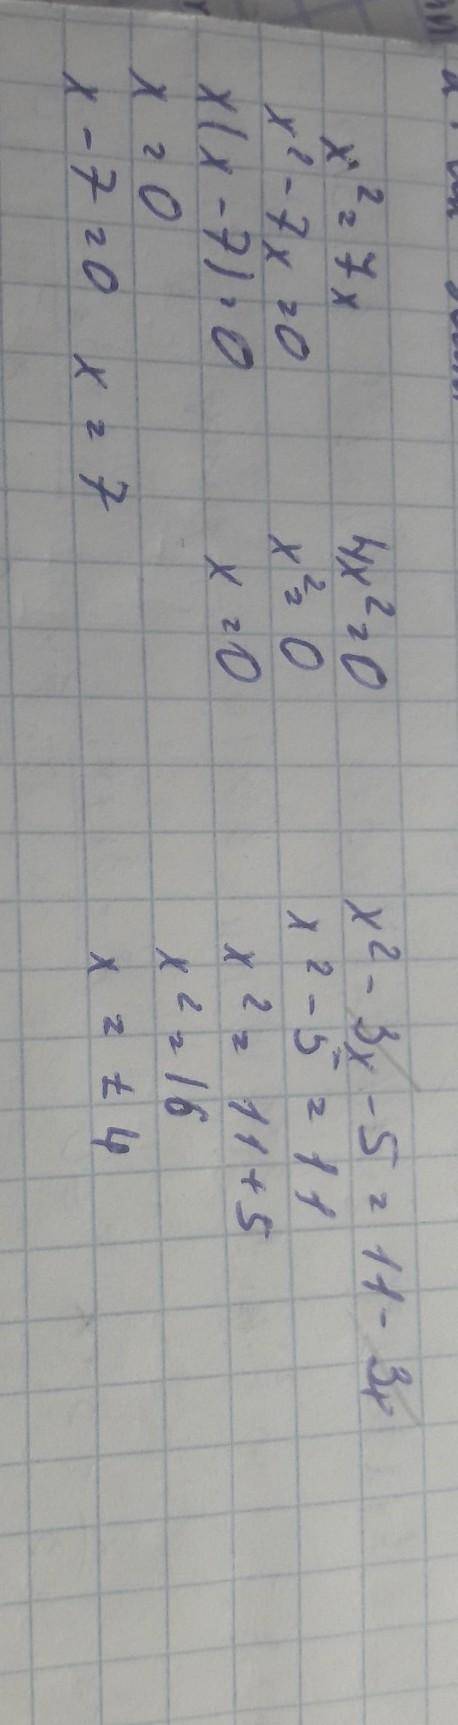 x² = 7x
x² - 7x = 0
x(x - 7) = 0
x = 0
x - 7 = 0 x = 7
4x² = 0
x² = 0
x = 0
x² - 3x - 5 = 11 - 3x
x² - 5 = 11
x² = 11 + 5
x² = 16
x = ±4